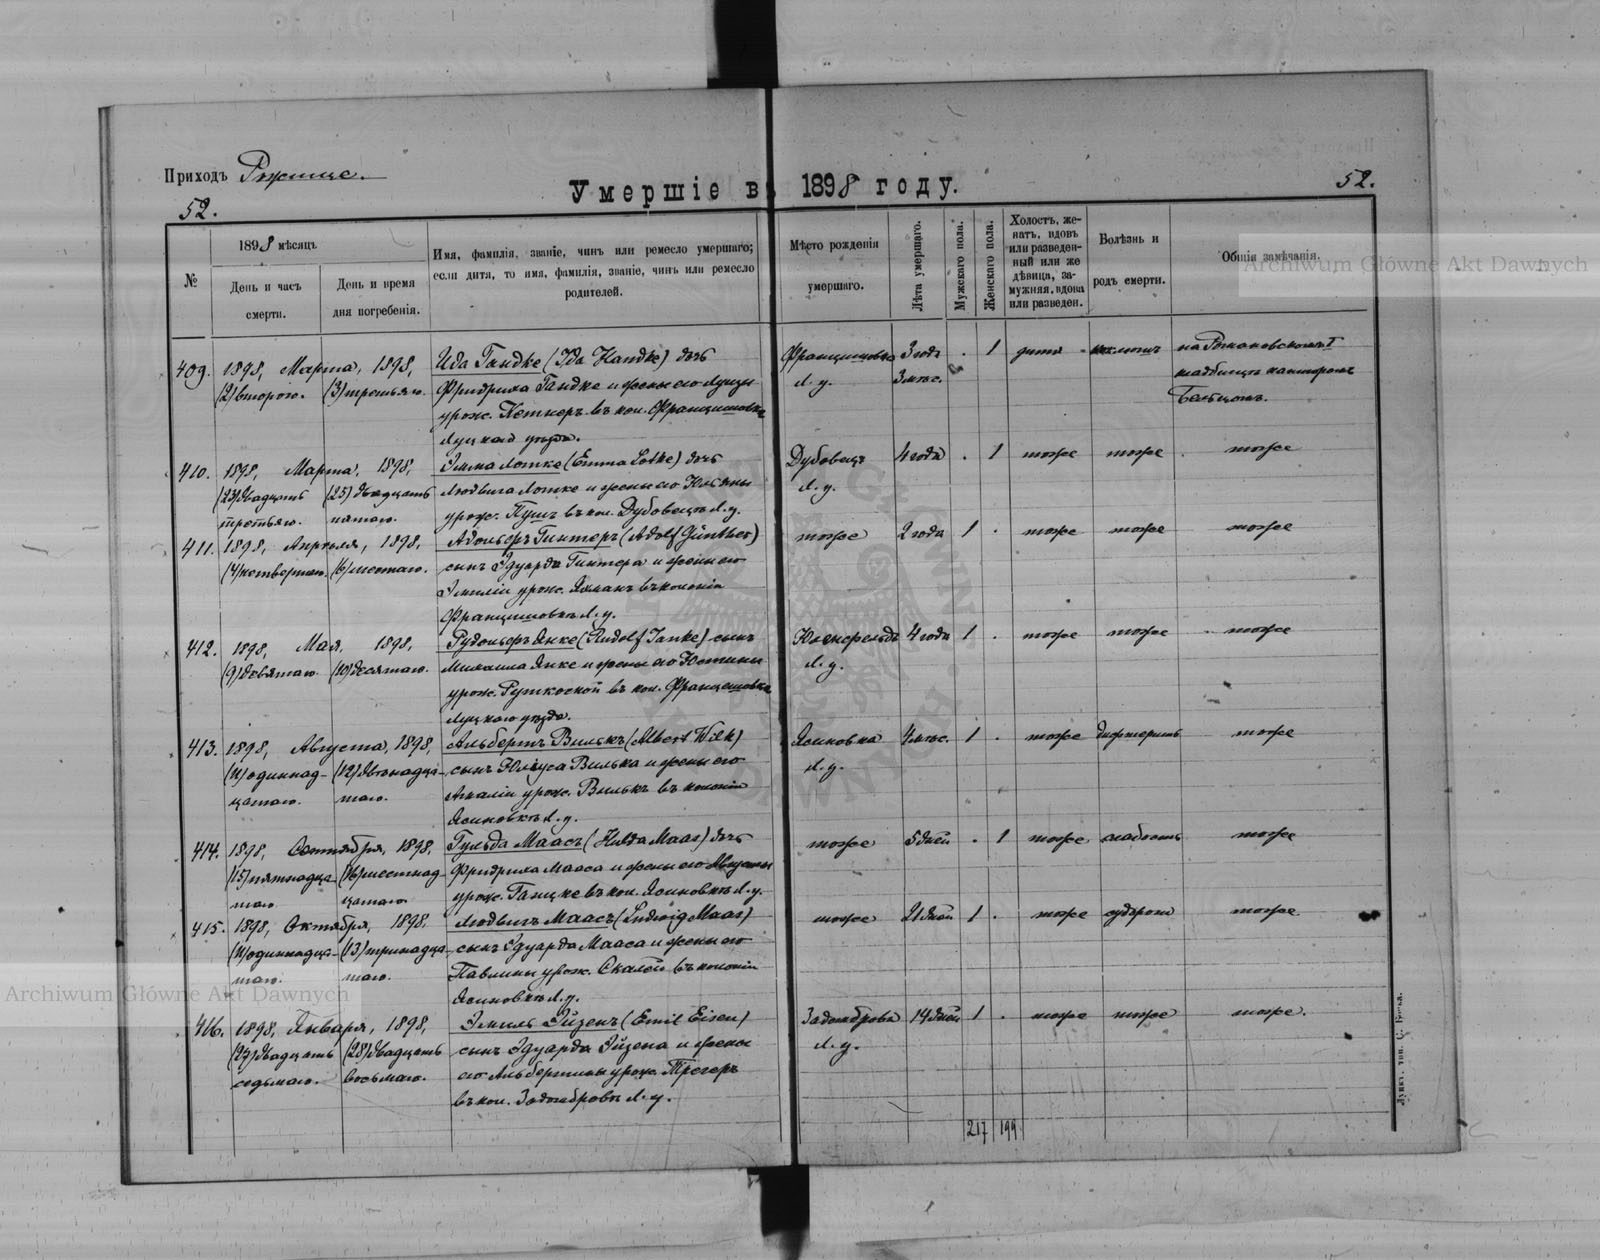 Приходъ Рожище.
Умершіе въ 1898 году.
52.
52.
№
1898 мѣсяцъ
День и часъ смерти.
День и время дня погребенія.
Имя, фамилія, званіе, чинъ или ремесло умершаго;
если дитя, то имя, фамилія, званіе, чинъ или ремесло
родителей.
Мѣсто рожденія
умершаго.
Лѣта умершаго.
Мужскаго пола.
Женскаго пола.
Холостъ, же-
натъ, вдовъ
или разведен-
ный или же
дѣвица, за-
мужняя, вдова
или разведен.
Болѣзнь и
родъ смерти.
Общія замѣчанія.
Archiwum Główne Akt Dawnych
409. 1898, Марта, 1898, Ида Гандке (Ida Handke) дочь Францишовка 3 года . 1 дитя на Рожановскомъ
(2) второго. (3) третьяго. Фридриха Гандке и жены его Л. у. 3 мѣс. кладбищѣ канторомъ
урож. въ кол. Францишовка
Луцкаго уѣзда.
410. 1898, Марта, 1898, Эмма Лотке (Emma Lotke) дочь Дубовецъ 4 года . 1 тоже тоже тоже
(23) двадцать (25) двадцать Людвига Лотке и жены его Юльяны Л. у.
третьяго. пятаго. урож. Пушъ въ кол. Дубовецъ Л. у.
411. 1898, Апрѣля, 1898, Адольфъ Гинтеръ (Adolf Günther) тоже 2 года 1 . тоже тоже тоже
(4) четвертаго. (6) шестаго. сынъ Эдуарда Гинтера и жены его
Эмиліи урож. въ колоніи
Францишовкѣ Л. у.
412. 1898, Мая, 1898, Рудольфъ Янке (Rudolf Janke) сынъ 4 года 1 . тоже тоже тоже
(9) девятаго. (10) десятаго. Михаила Янке и жены его Юстины Л. у.
урож. Руткоской въ кол. Францишовка
Луцкаго уѣзда.
413. 1898, Августа, 1898, Альбертъ Вилькъ (Albert Wilk) Ясиновка 4 мѣс. 1 . тоже дифтеритъ тоже
(11) одиннад- (12) двѣнадца- сынъ Юліуса Вилька и жены его Л. у.
цатаго. таго. Амаліи урож. Вилькъ въ колоніи
Ясиновкѣ Л. у.
414. 1898, Сентября, 1898, Гульда Маасъ (Hulda Maas) дочь тоже 5 дней . 1 тоже слабость тоже
(15) пятнадца- (16) шестнад- Фридриха Мааса и жены его Августы
таго цатаго. урож. Ганцке въ кол. Ясиновкѣ Л. у.
415. 1898, Октября, 1898, Людвигъ Маасъ (Ludwig Maas) тоже 21 дней 1 . тоже судороги тоже
(11) одиннадца- (13) тринадца- сынъ Эдуарда Мааса и жены его
таго. таго. Павлины урож. въ колоніи
Ясиновкѣ Л. у.
416. 1898, Января, 1898, Эмиль Эйзенъ (Emil Eisen) Задомбровъ 14 дней 1 . тоже тоже тоже.
(27) двадцать (28) двадцать сынъ Эдуарда Эйзена и жены Л. у.
седьмаго. восьмаго. его Альбертины урож. Трегеръ
въ кол. Задомбровъ Л. у.
217 199
Archiwum Główne Akt Dawnych